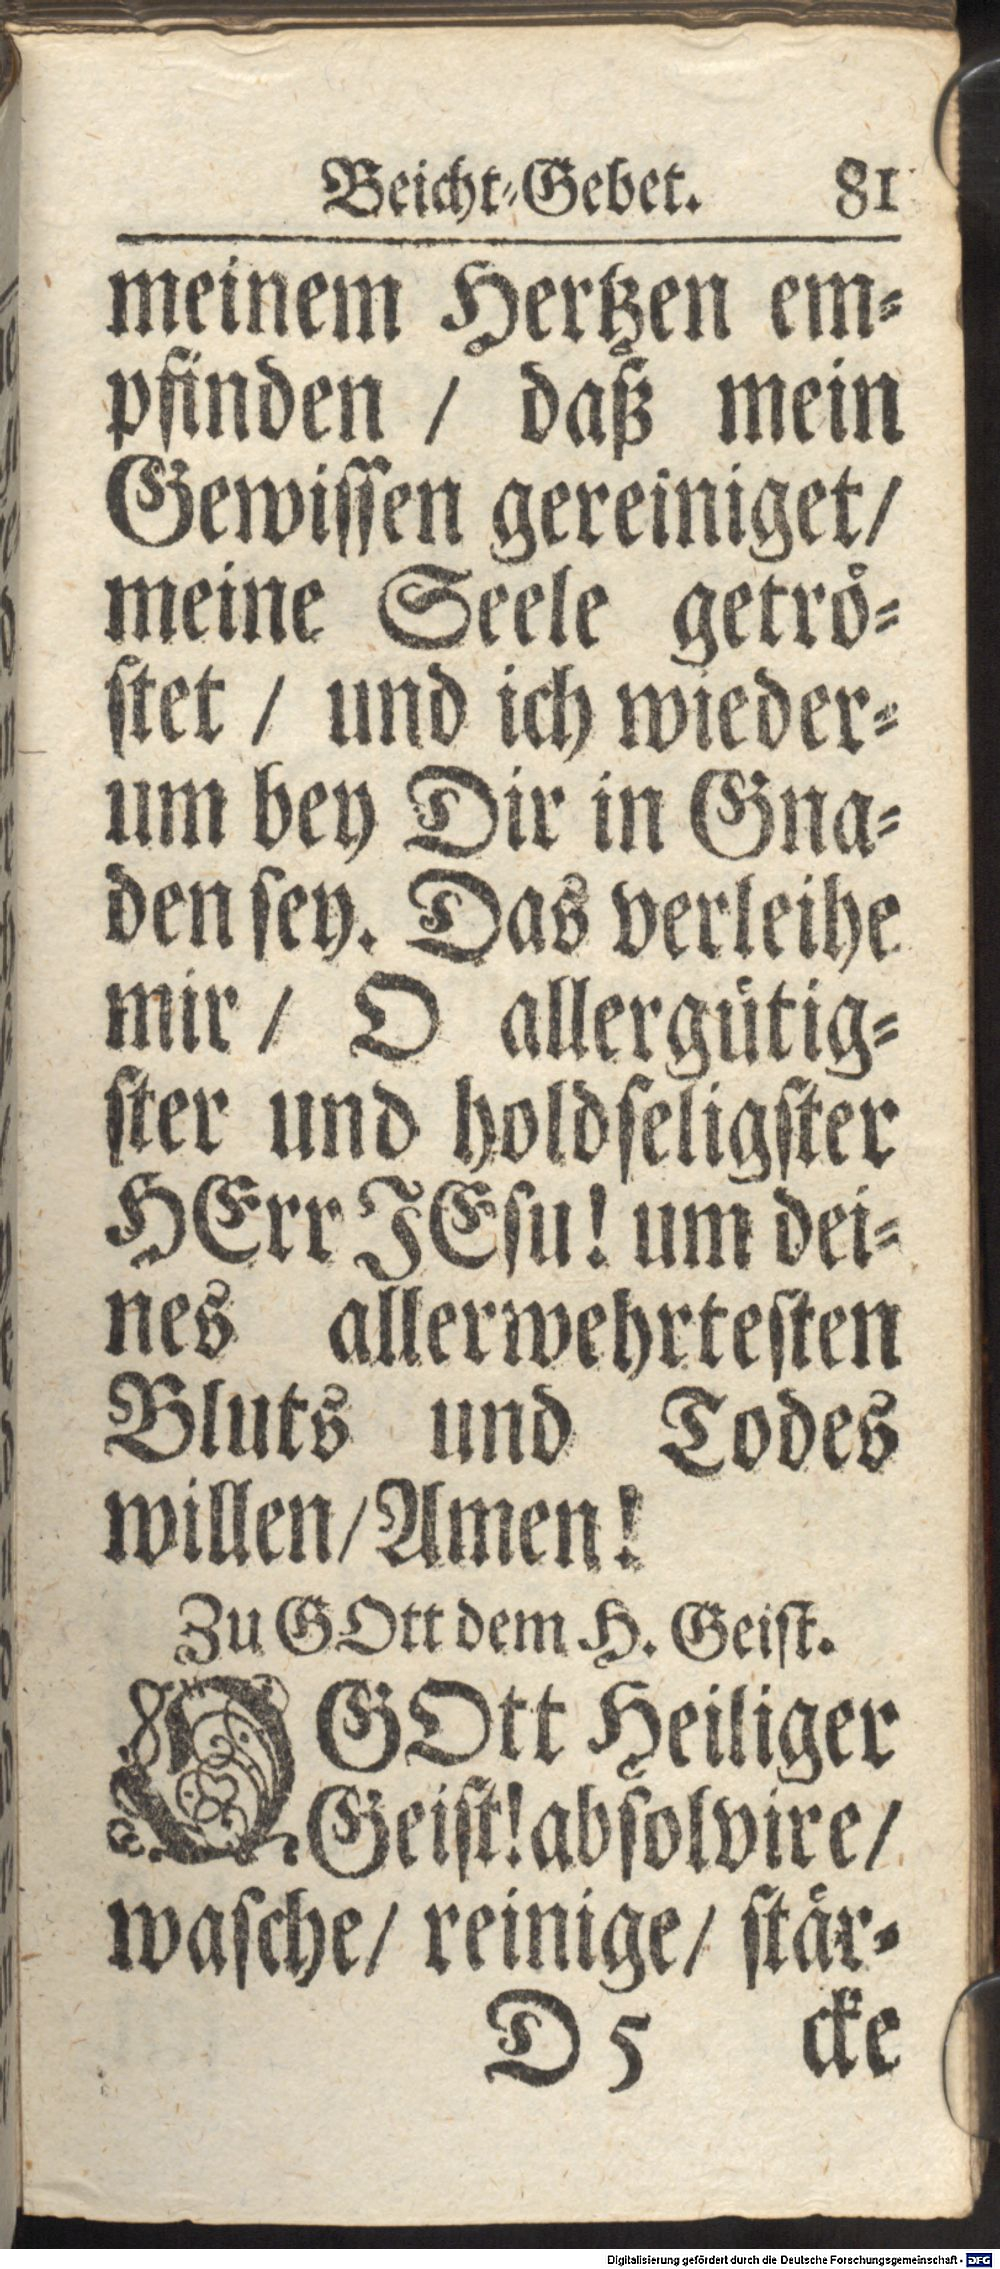 Beicht-Gebet. 81
meinem Hertzen em-
pfinden / daß mein
Gewissen gereiniget/
meine Seele getrö-
stet / und ich wieder-
um bey Dir in Gna-
den sey. Das verleihe
mir / O allergütig-
ster und holdseligster
HErr JEsu! um dei-
nes allerwehrtesten
Bluts und Todes
willen/Amen!
Zu GOtt dem H. Geist.
O GOtt Heiliger
Geist! absolvire/
wasche/ reinige/ stär-
D 5 cke
Digitalisierung gefördert durch die Deutsche Forschungsgemeinschaft - DFG